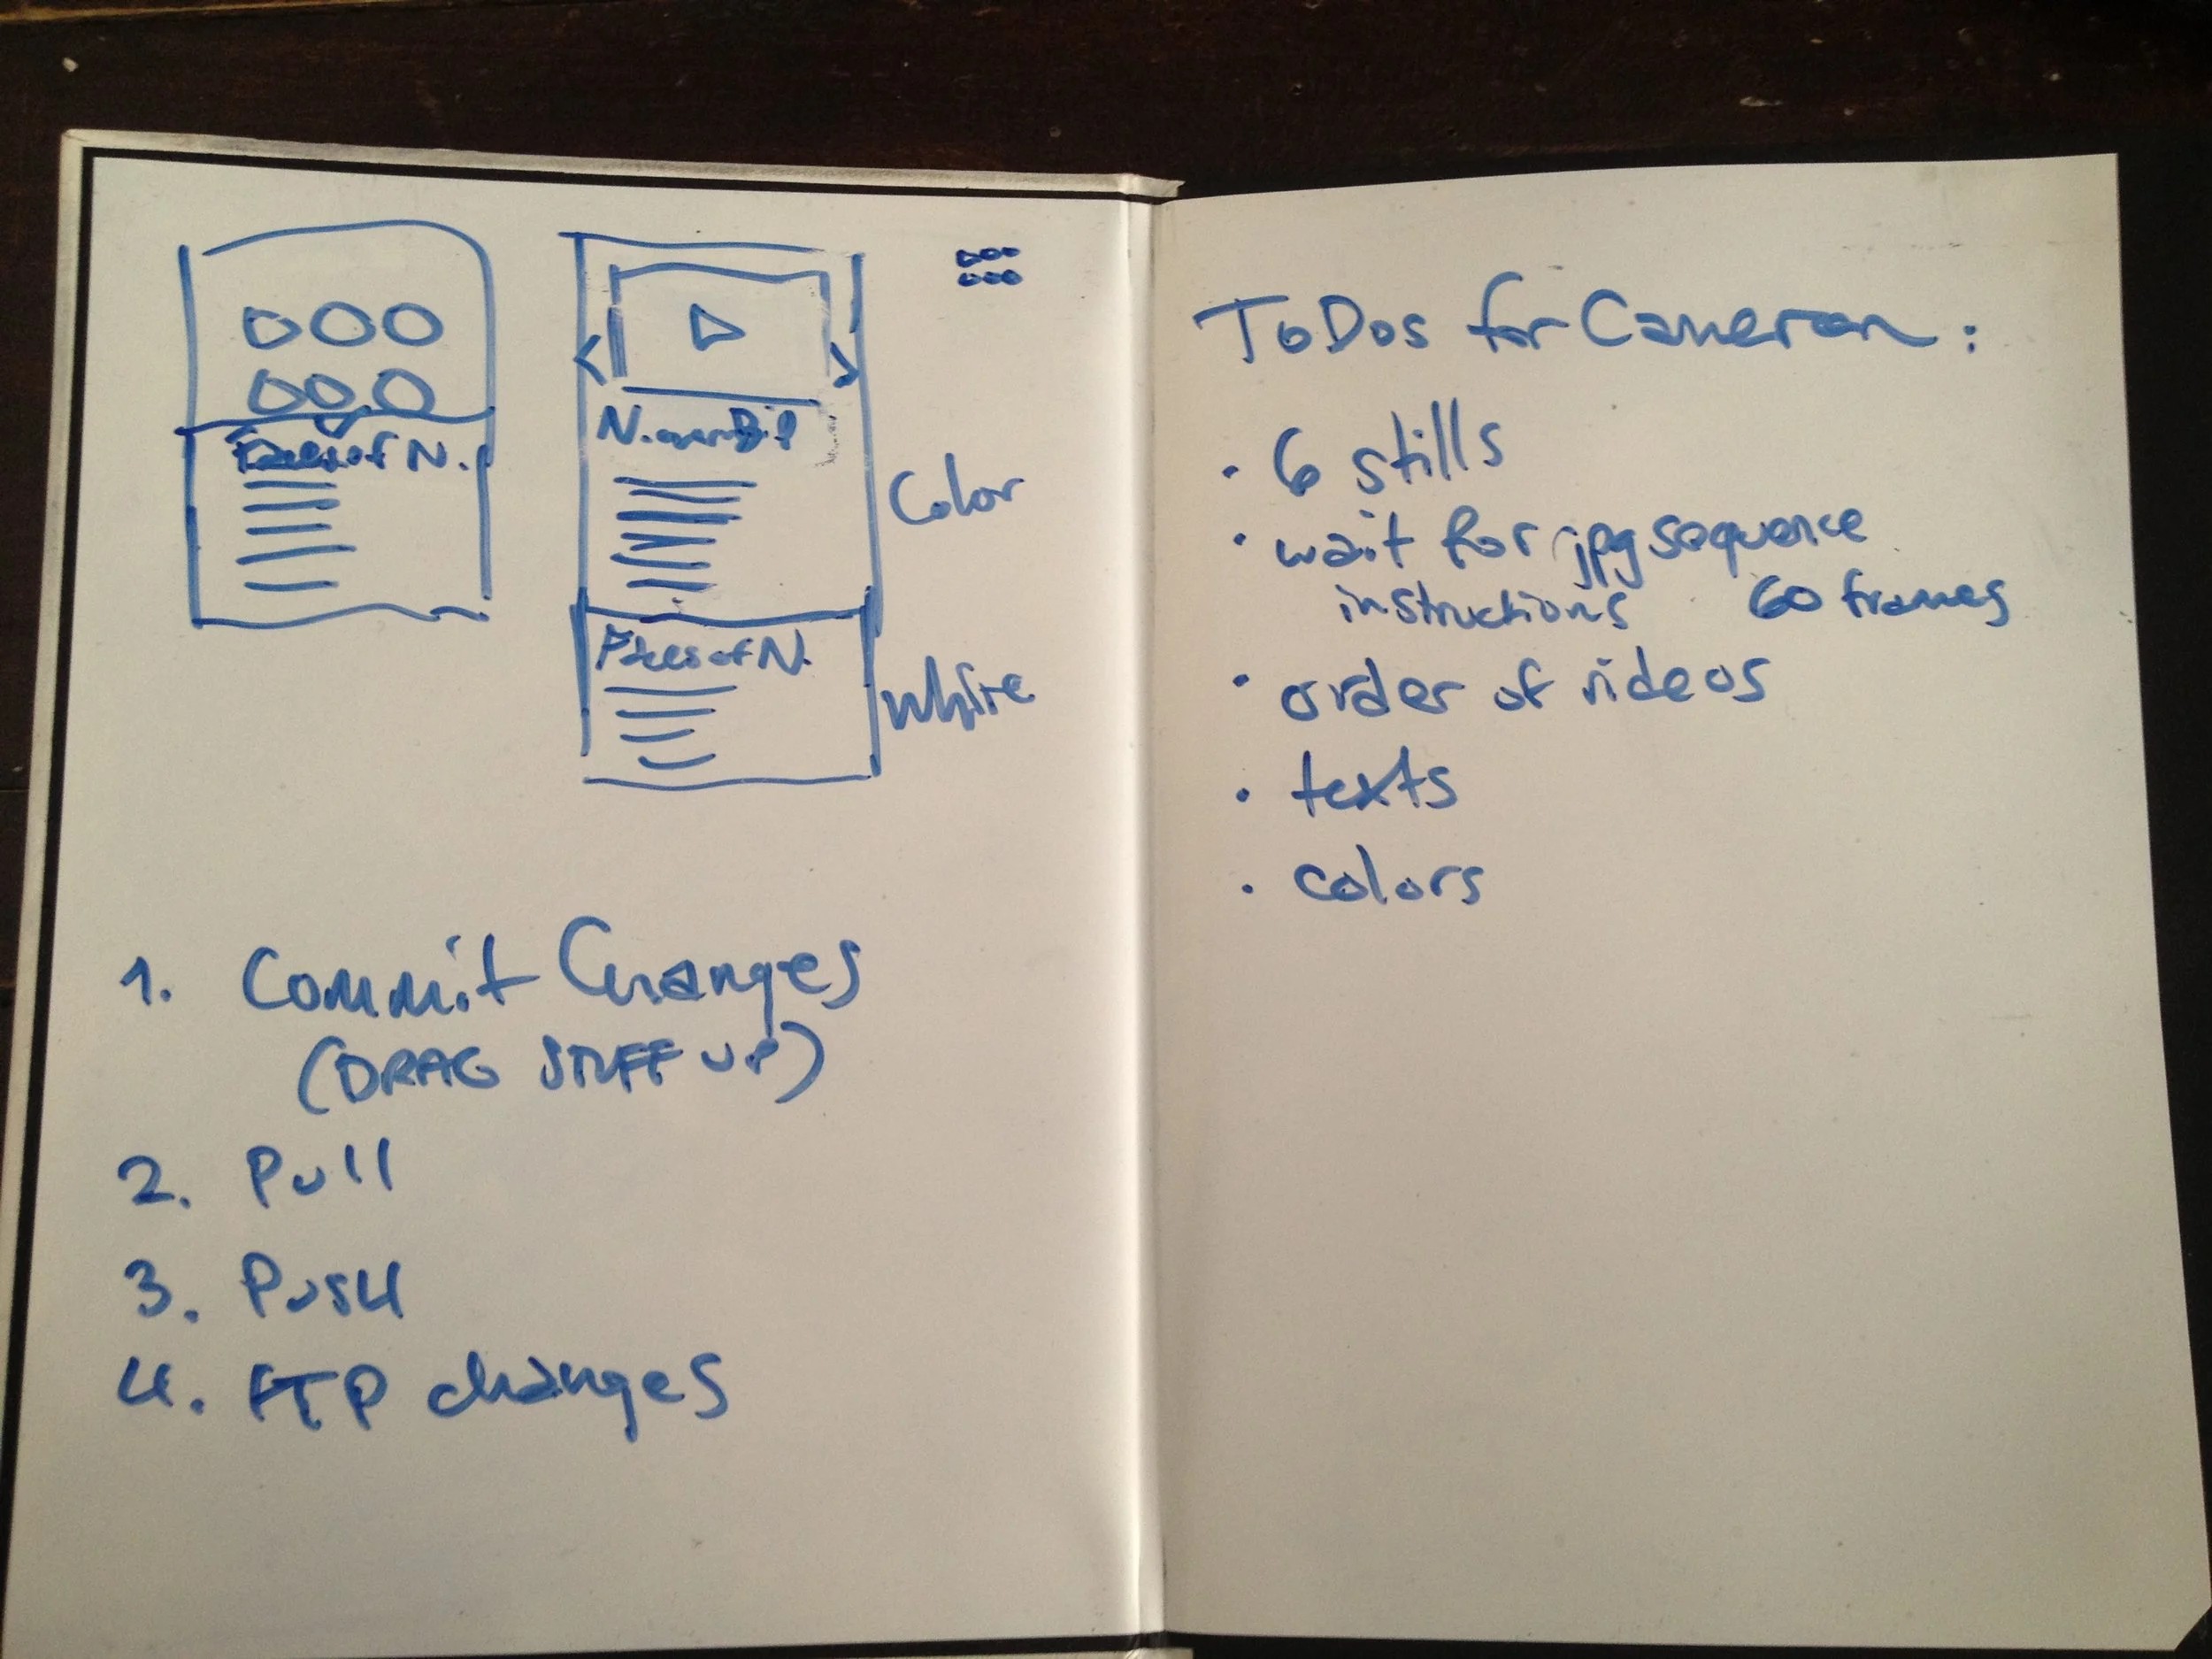 Faces of N.
Color
Faces of N.
White
1. Commit Changes
(DRAG STUFF UP)
2. Pull
3. Push
4. FTP changes
ToDos for Cameron:
• 6 stills
• wait for jpg sequence
instructions 60 frames
• order of videos
• texts
• colors